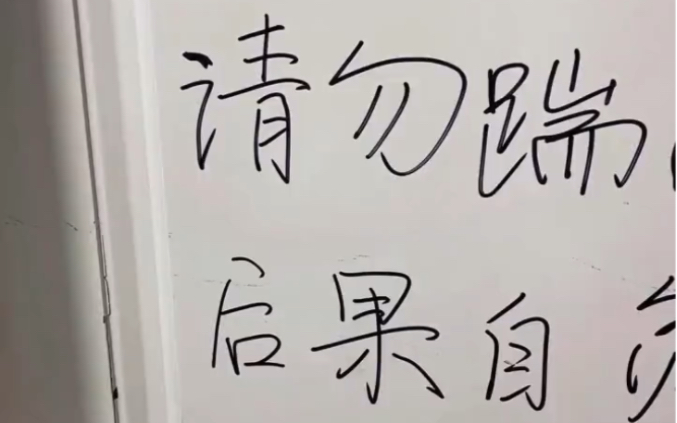 请勿踹
后果自